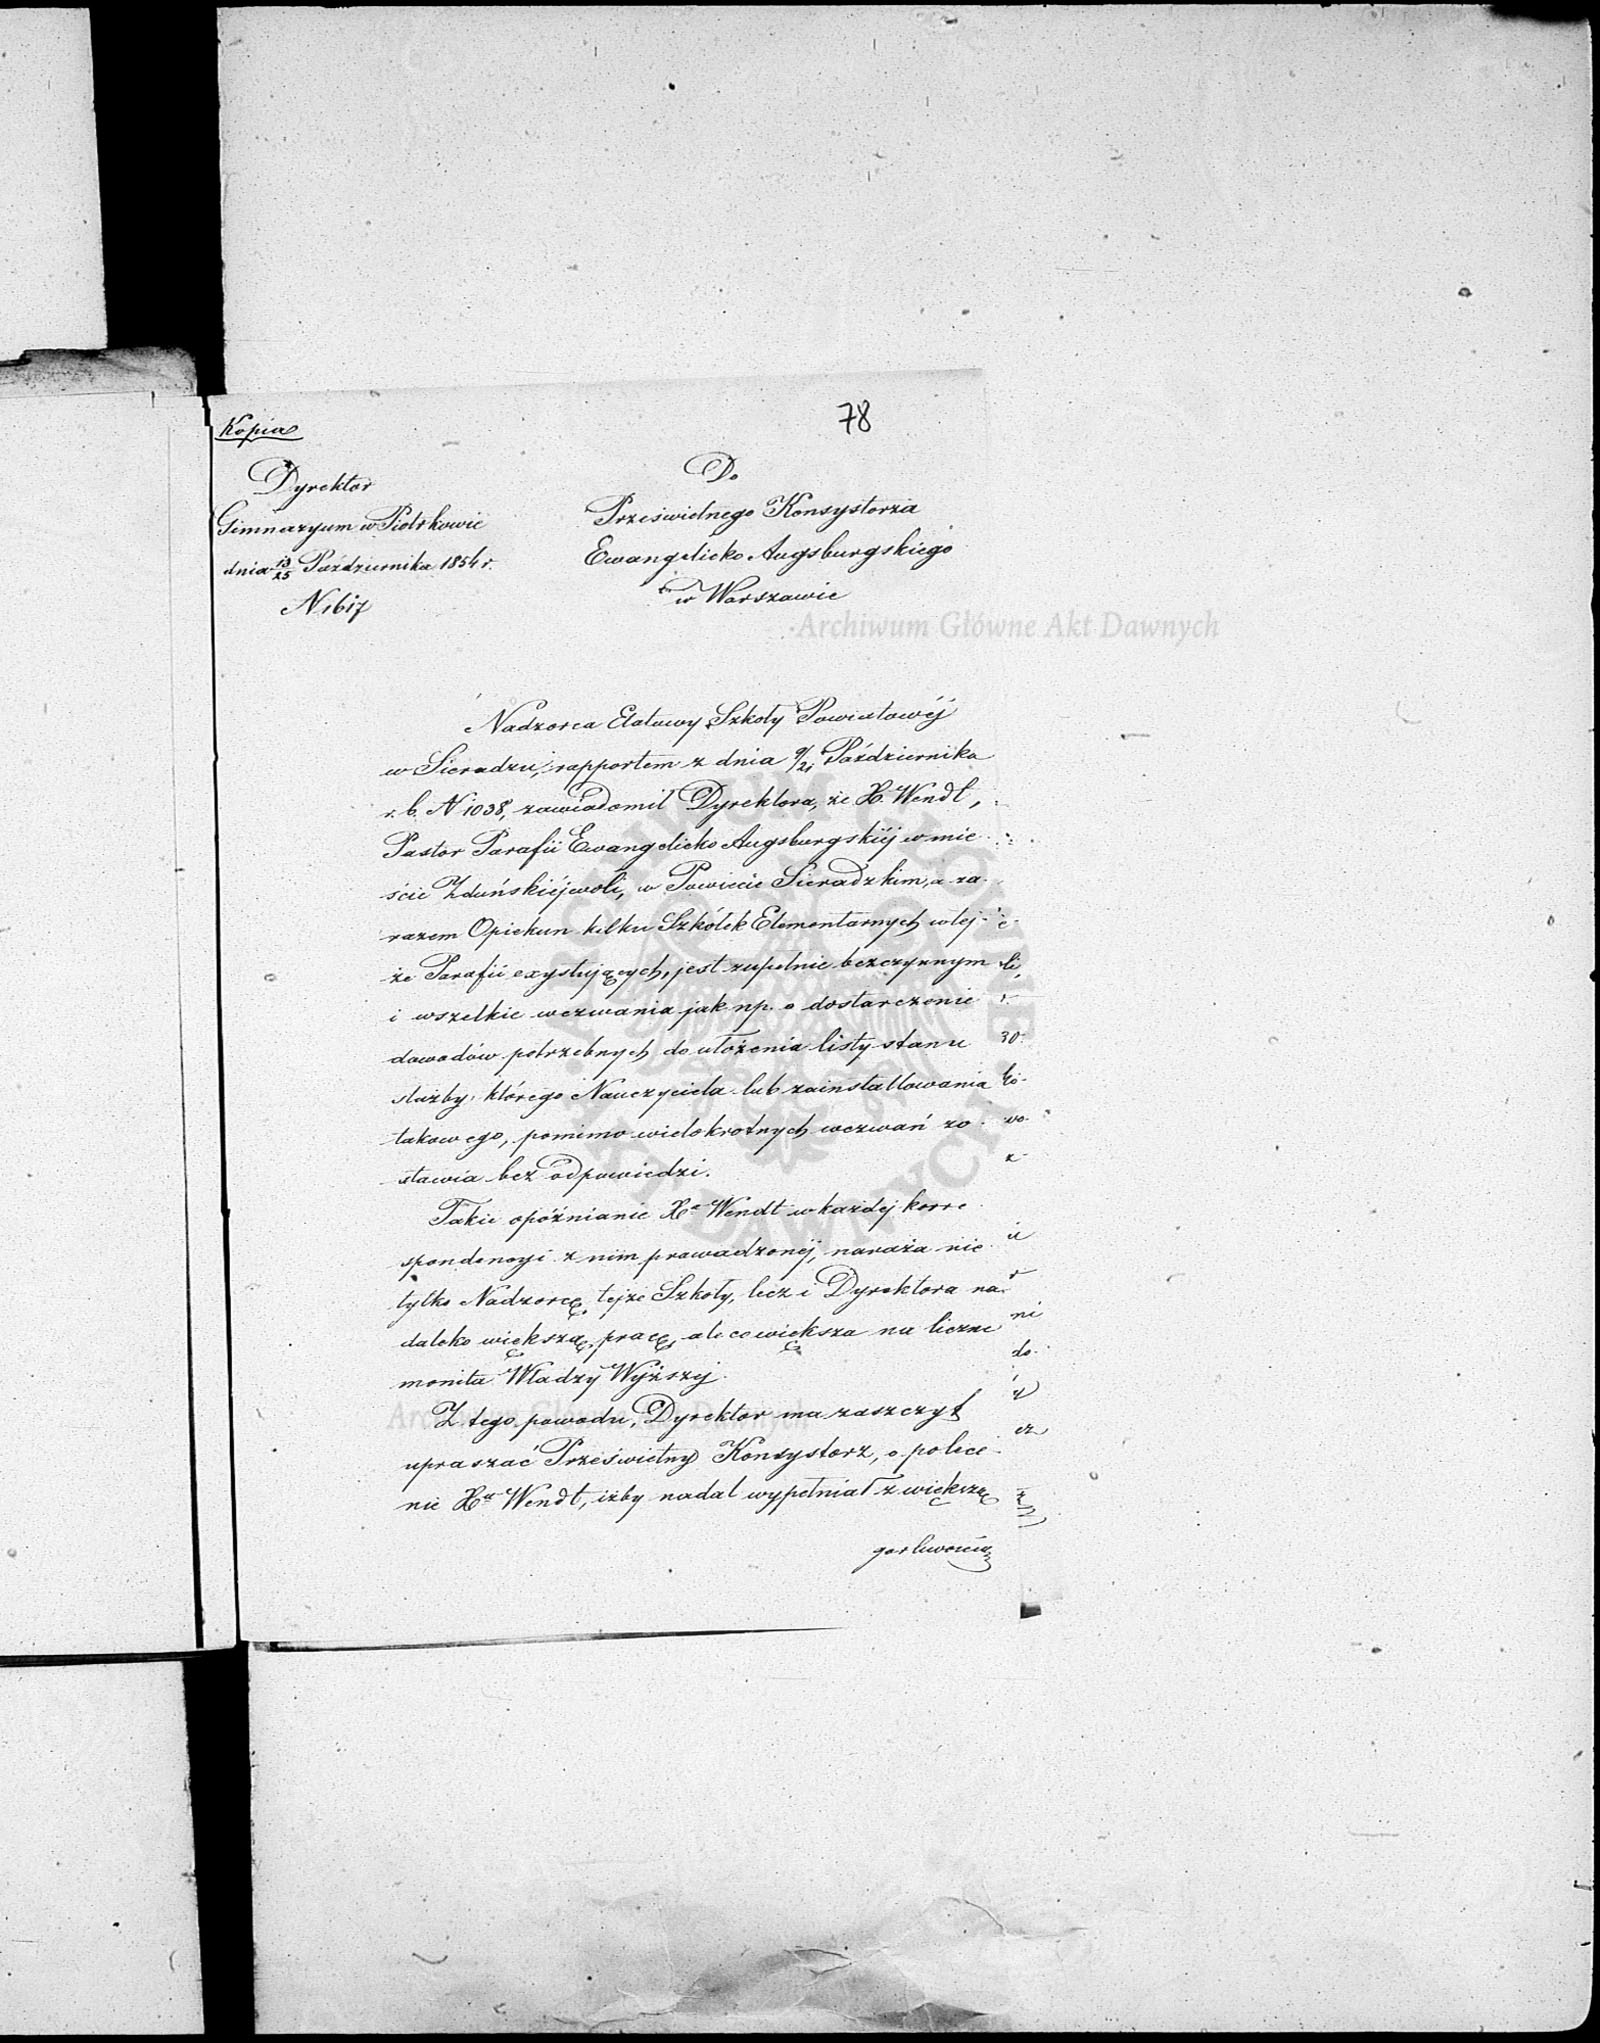 78
Kopia
Dyrektor
Gimnazyum w Piotrkowie
dnia 13/25 Października 1854 r.
N 1617
Do
Prześwietnego Konsystorza
Ewangelicko Augsburgskiego
w Warszawie
Archiwum Główne Akt Dawnych
Nadzorca Etatowy Szkoły Powiatowéj
w Sieradzu, rapportem z dnia 9/21 Października
r. b. N 1038, zawiadomił Dyrektora, że X. Wendt,
Pastor Parafii Ewangelicko Augsburgskiéj w mie
ście Zduńskiéjwoli, w Powiecie Sieradzkim, a za
razem Opiekun kilku Szkółek Elementarnych w tej-
że Parafii exystujących, jest zupełnie bezczynnym
i wszelkie wezwania jak np. o dostarczenie
dowodów potrzebnych do ułożenia listy stanu
służby którego Nauczyciela lub zainstallowania
takowego, pomimo wielokrotnych wezwań zo
stawia bez odpowiedzi.
Takie opóźnianie Xa Wendt w każdej korre
spondencyi z nim prowadzonéj, naraża nie
tylko Nadzorcę tejże Szkoły, lecz i Dyrektora na
daleko większą pracę, ale co większa na liczne
monita Władzy Wyższej.
Z tego powodu, Dyrektor ma zaszczyt
upraszać Prześwietny Konsystorz, o polece
nie Xu Wendt, iżby nadal wypełniał z większą
gorliwością
Archiwum Główne Akt Dawnych
ARCHIWUM GŁÓWNE AKT DAWNYCH